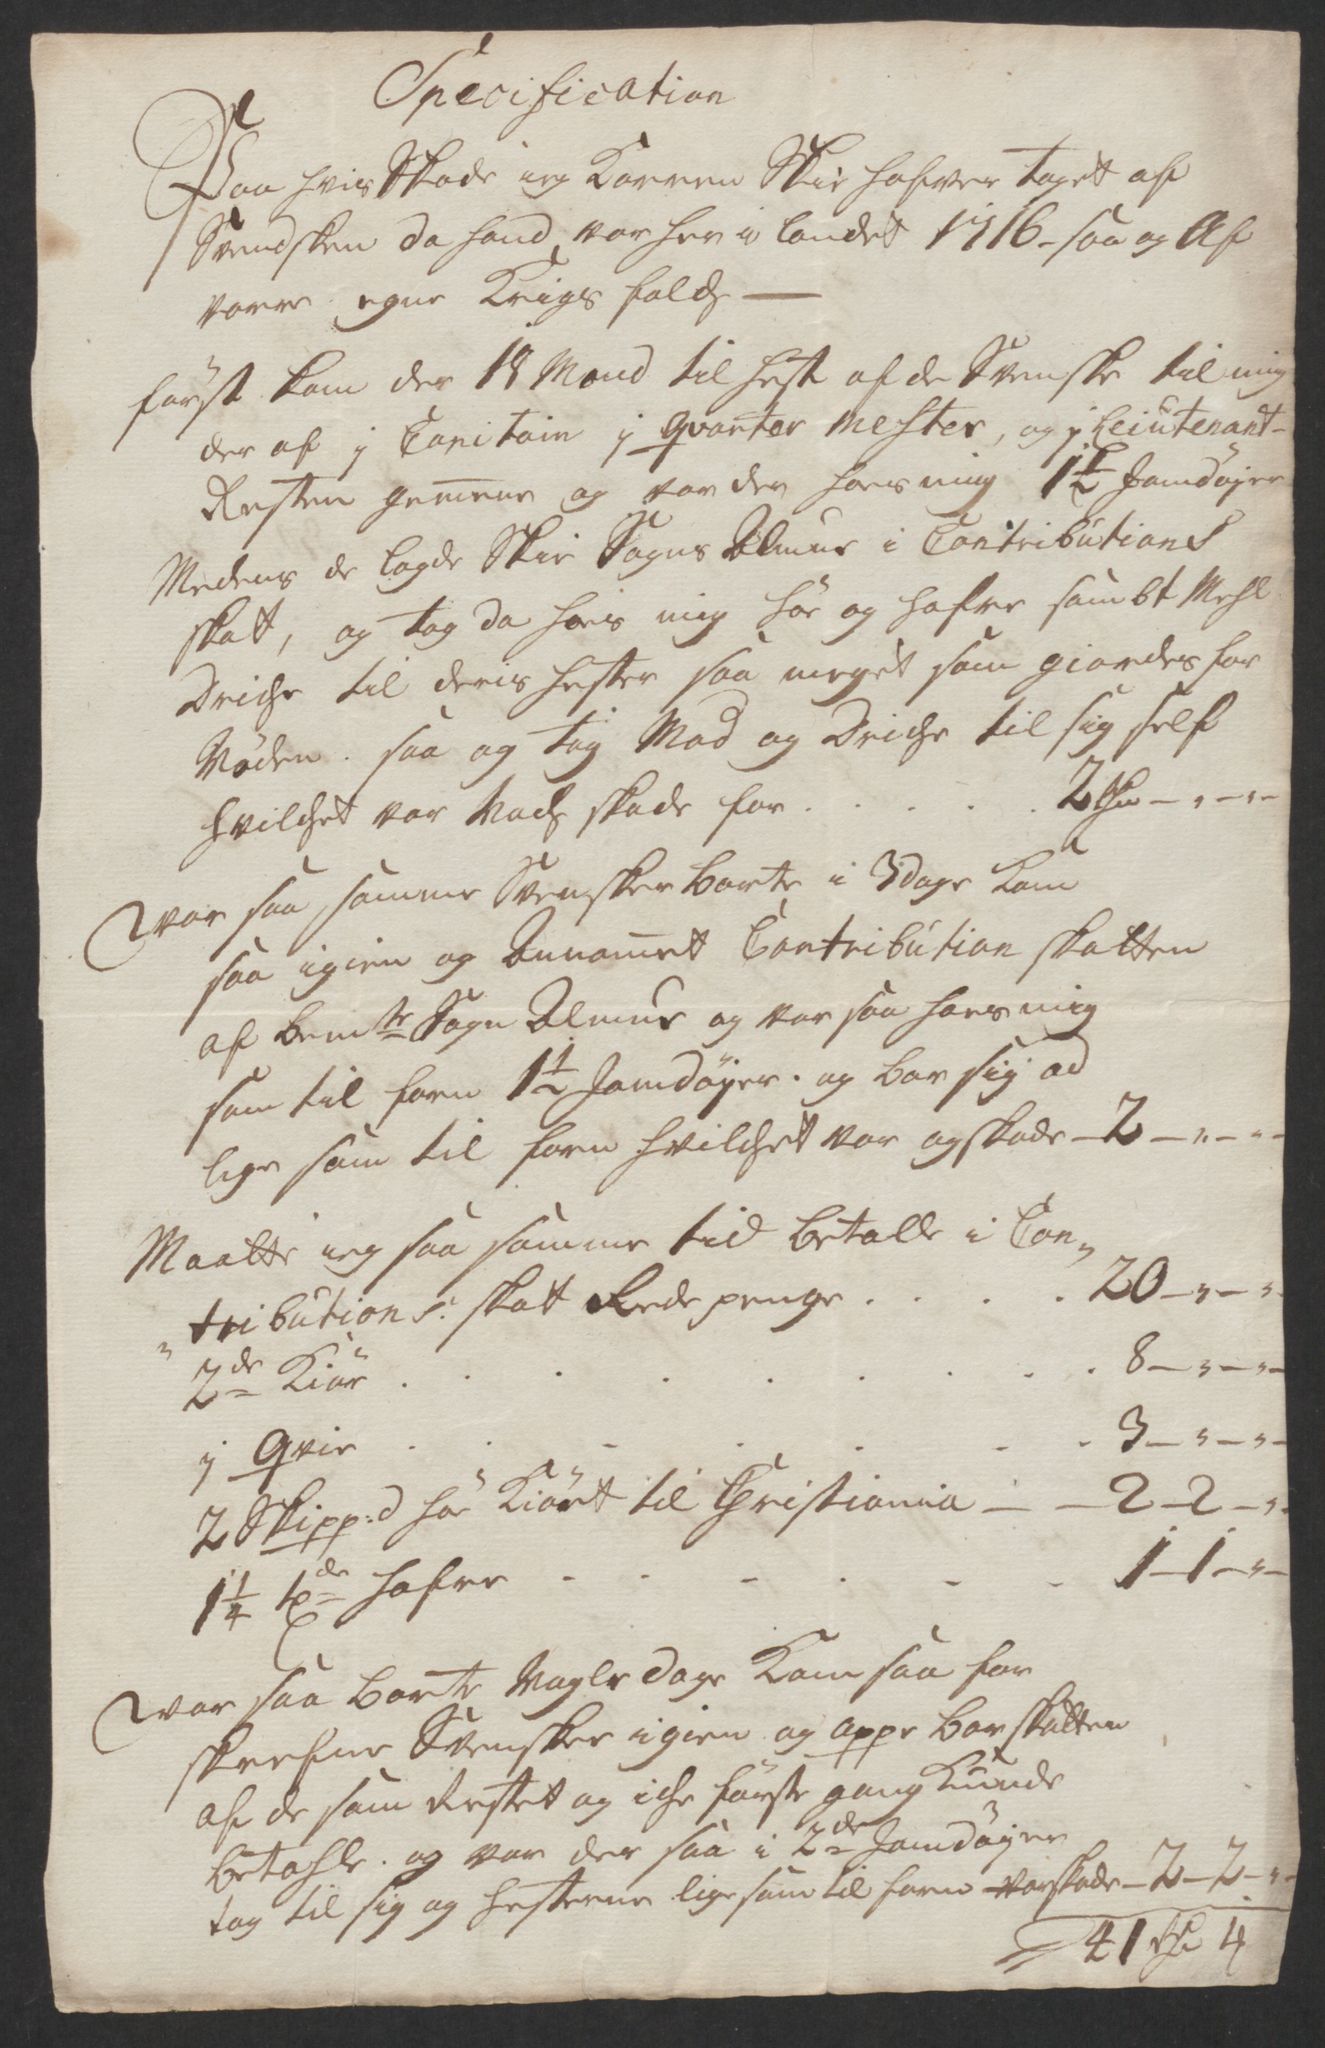 Specification
Paa hvis Skade ieg Karren Skie hafver taget af
Svendsken da hand var her i Landet 1716 - saa og Af
vorre egne Krigs folch —
først kom der 18 Mand til hest af de Svenske til mig
der af j Capitain j Qvarter Mester, og j Leiutenant -
Resten gemene og var der hoes mig 1½ Jamdøgn
Medens de lagde Skie Sogns Almue i Contributions
skat, og tog da hois mig høe og hafre sambt Mehl
Driche til deris hester saa meget som giordes for
Nøden. saa og tog Mad og Driche til sig self
hvilchet var Voch skade for . . . . . 2 Rdr - " - " -
Var saa samme Svensker borte i 3 dage kom
saa igien og Annamet Contribution skatten
af bemte Sogn Almue og var saa hoes mig
som til forn 1½ Jamdøgn. og bar sig ad
lige som til forn hvilchet var og skade - 2 - " - " -
Maatte ieg saa samme tid betalle i Con„
„tributions skat Rede penge . . . . 20 - " - "
2de Kiør . . . . . . . . 8 - " - " -
j Qvie . . . . . . . 3 - " - " -
2 Skippd høe Kiørt til Christiania — — 2 - 2 - "
1¼ tde hafre - - - - - - 1 - 1 - " -
Var saa borte Nogle dage kom saa for
skrefne Svensker igien og oppe bar skatten
af de som Restet og iche første gang kunde
betahle. og var der saa i 2de Jamdøgn
tog til sig og hesterne lige som til forn var skade - 2 - 2 - "
41 Rdr 4